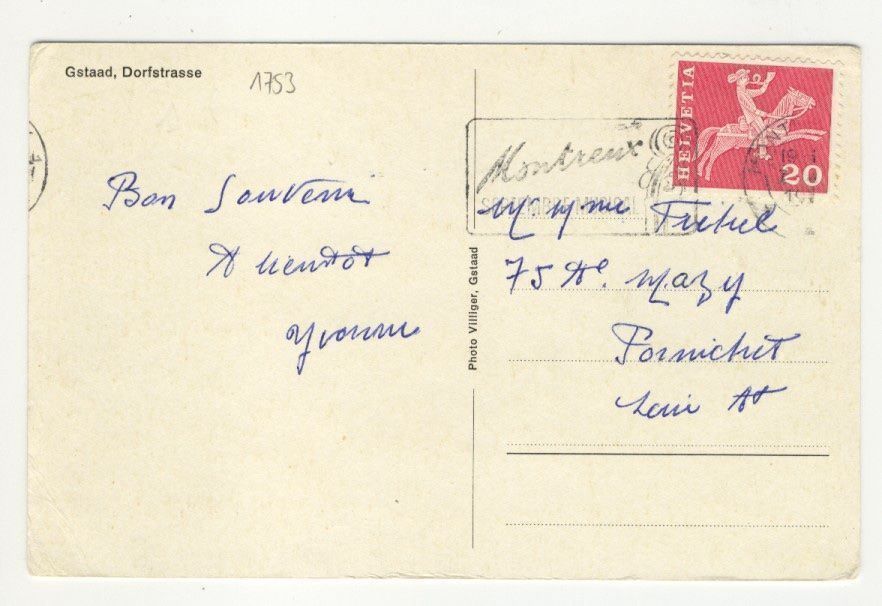 Gstaad, Dorfstrasse
1753
HELVETIA
20
Montreux
SEPTEMBRE MUSICAL
Bon Souvenir
A bientôt
Yvonne
Photo Villiger, Gstaad
M Mme
75 Av. Mazy
Pornichet
Loire At